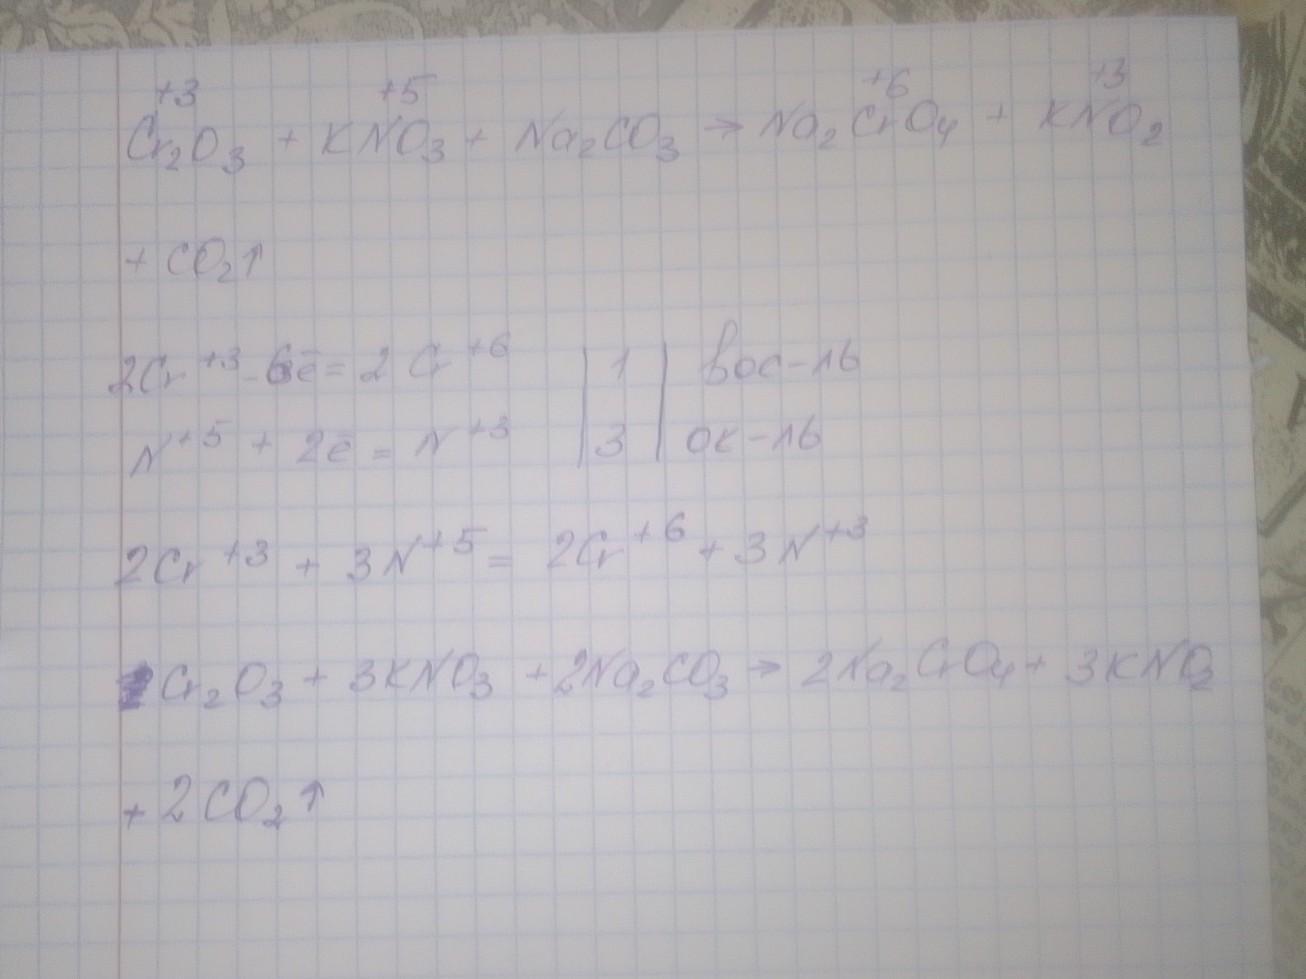 +3 +5 +6 +3
Cr₂O₃ + KNO₃ + Na₂CO₃ → Na₂CrO₄ + KNO₂
+ CO₂↑
2Cr⁺³ - 6ē = 2Cr⁺⁶ | 1 | вос-ль
N⁺⁵ + 2ē = N⁺³ | 3 | ок-ль
2Cr⁺³ + 3N⁺⁵ = 2Cr⁺⁶ + 3N⁺³
Cr₂O₃ + 3KNO₃ + 2Na₂CO₃ → 2Na₂CrO₄ + 3KNO₂
+ 2CO₂↑